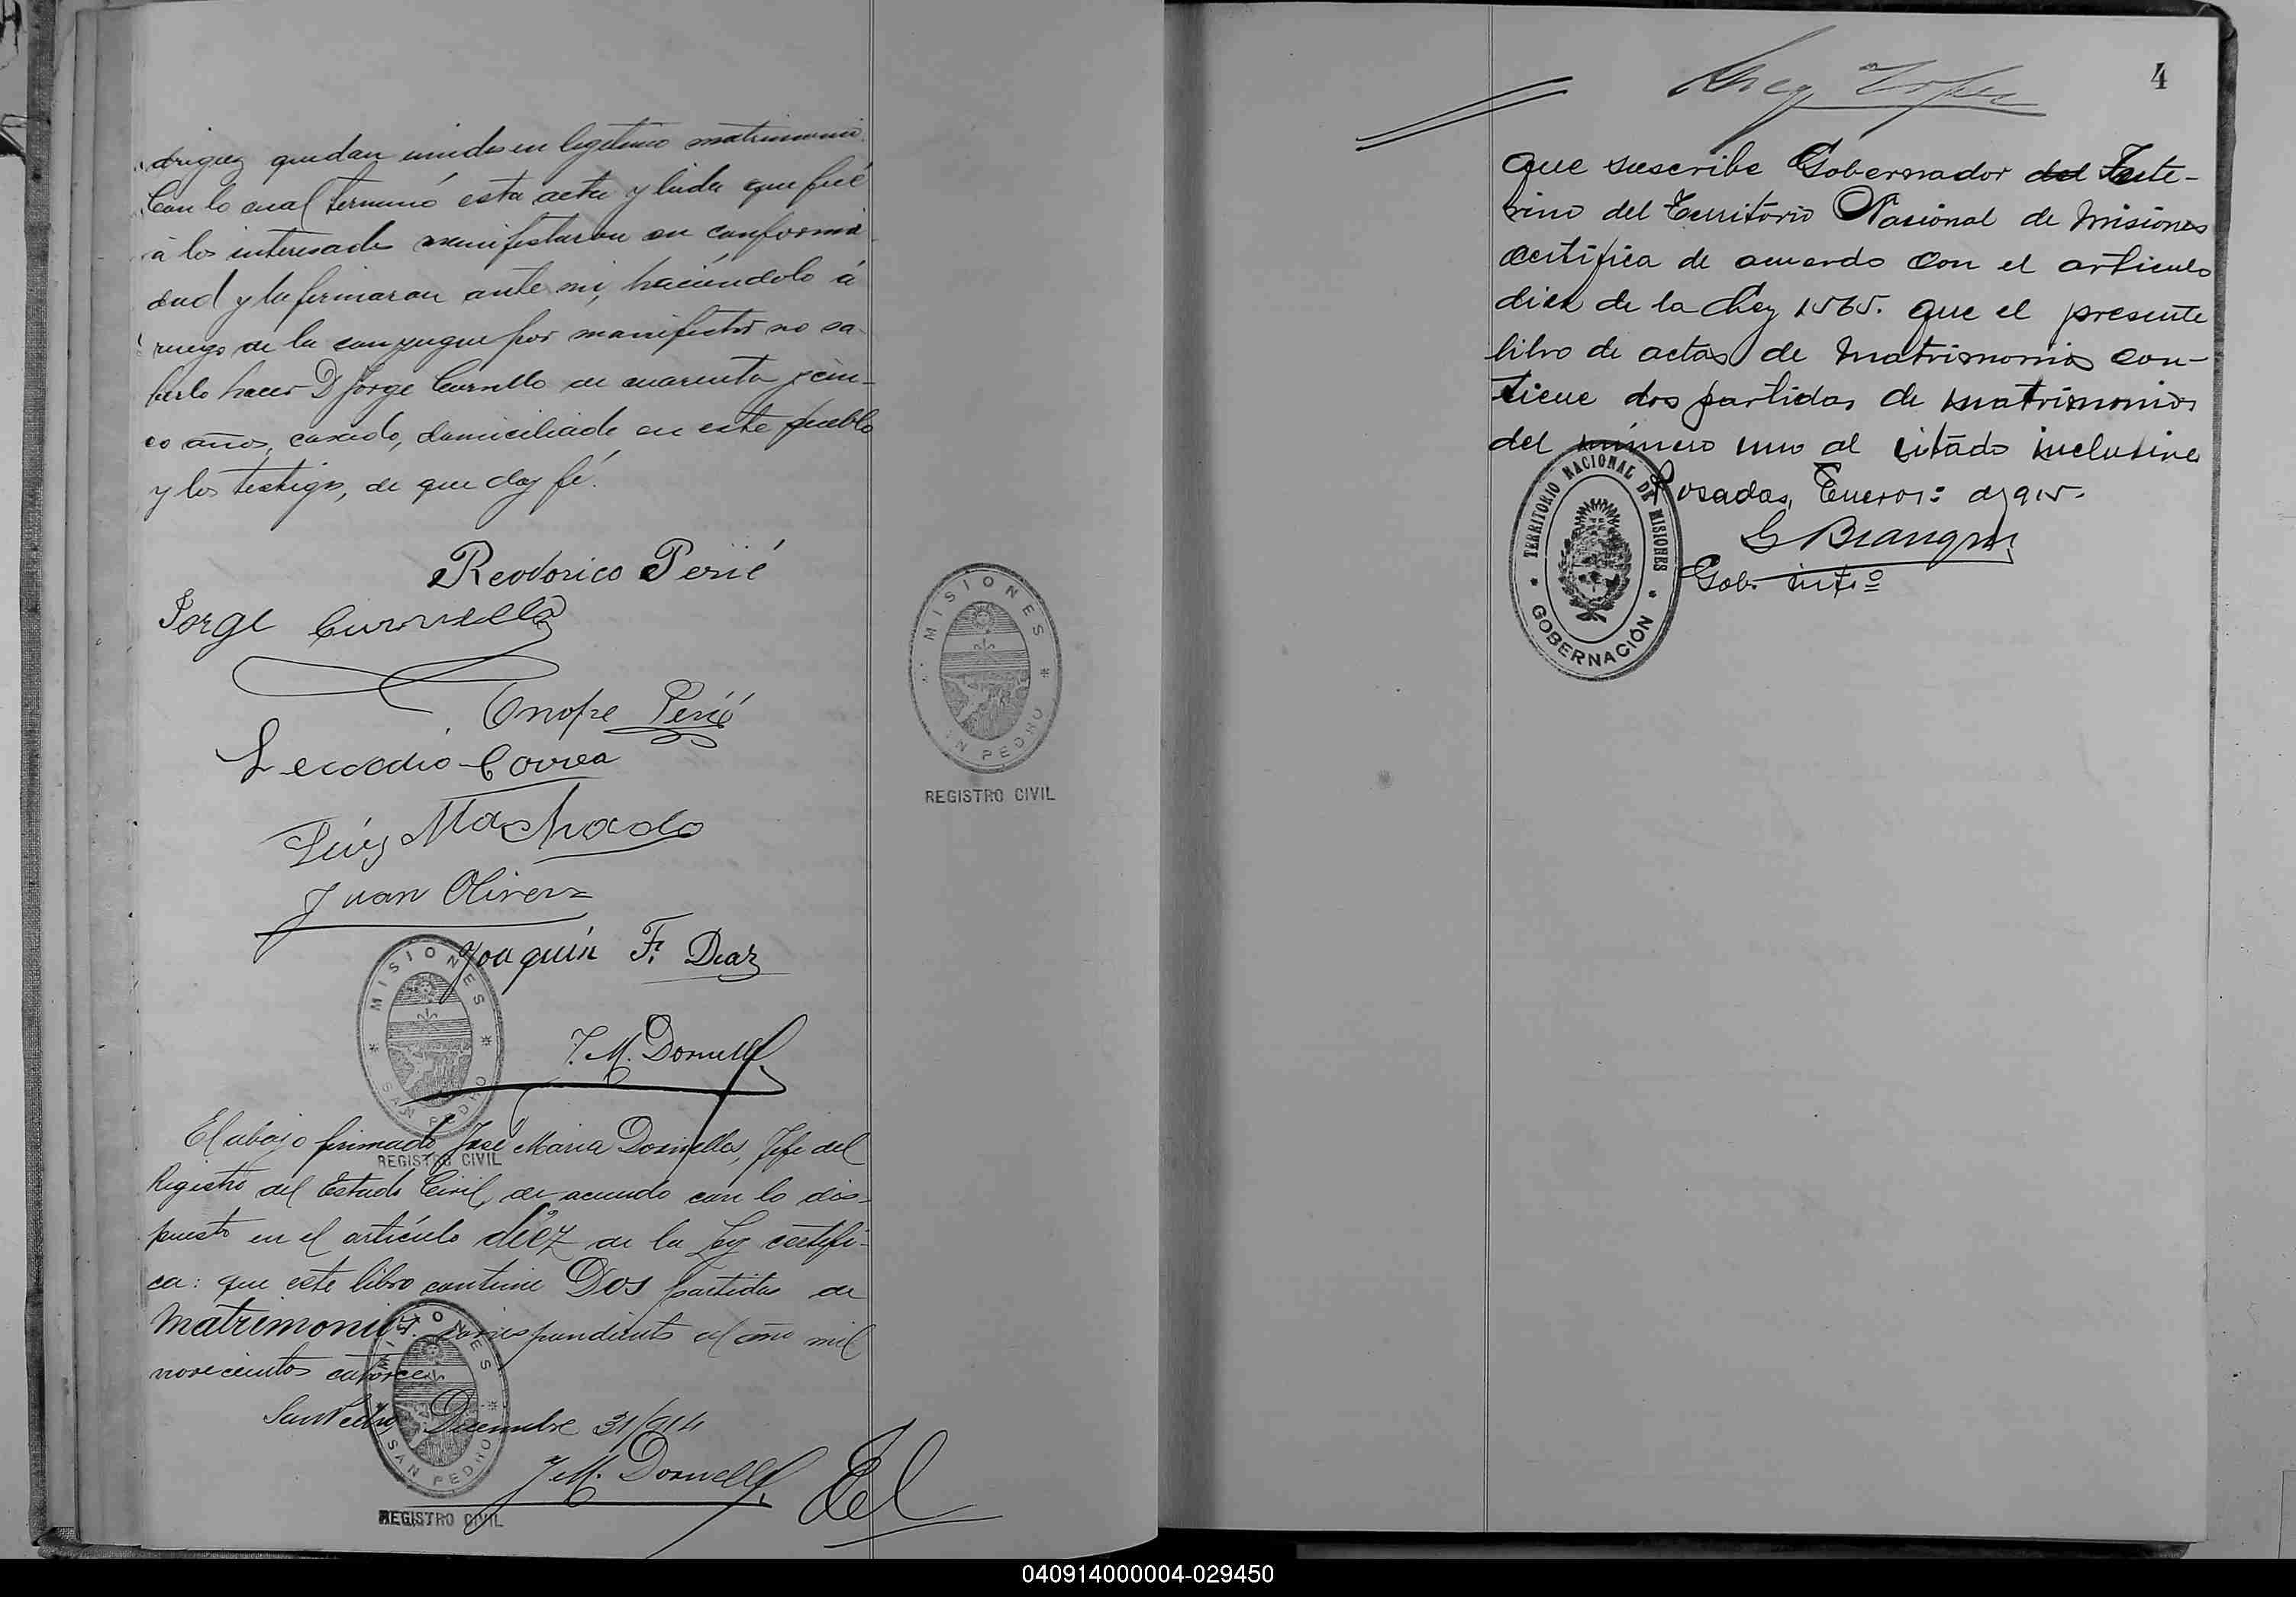 driguez quedan unidos en legitimo matrimonio.
Con lo cual terminó esta acta y leida que fué
á los interesados manifestaron su conformi-
dad y la firmaron ante mi, haciéndolo á
ruego de la conyugue por manifestar no sa-
berlo hacer D Jorge Curnello de cuarenta y cin-
co años, casado, domiciliado en este pueblo
y los testigos, de que doy fé.
Reodorico Perié
Jorge Curnello
Onofre Perié
Leocadio Correa
Luis Machado
Juan Olivera
Joaquín F. Diaz
MISIONES
SAN PEDRO
REGISTRO CIVIL
J. M. Dornelles
El abajo firmado, José Maria Dornelles, Jefe del
Registro del Estado Civil, de acuerdo con lo dis-
puesto en el artículo diez de la Ley certifi-
ca: que este libro contiene Dos partidas de
Matrimonios. correspondiente al año mil
novecientos catorce.
San Pedro Diciembre 31/914
J. M. Dornelles
MISIONES
SAN PEDRO
REGISTRO CIVIL
El
MISIONES
SAN PEDRO
REGISTRO CIVIL
4
que suscribe Gobernador del Inte-
rino del Territorio Nacional de Misiones
certifica de acuerdo con el articulo
diez de la Ley 1565. que el presente
libro de actas de Matrimonios con-
tiene dos partidas de matrimonios
del número uno al citado inclusive
Posadas, Enero 1: de 915.
Gob. int.º
TERRITORIO NACIONAL DE MISIONES
GOBERNACIÓN
040914000004-029450